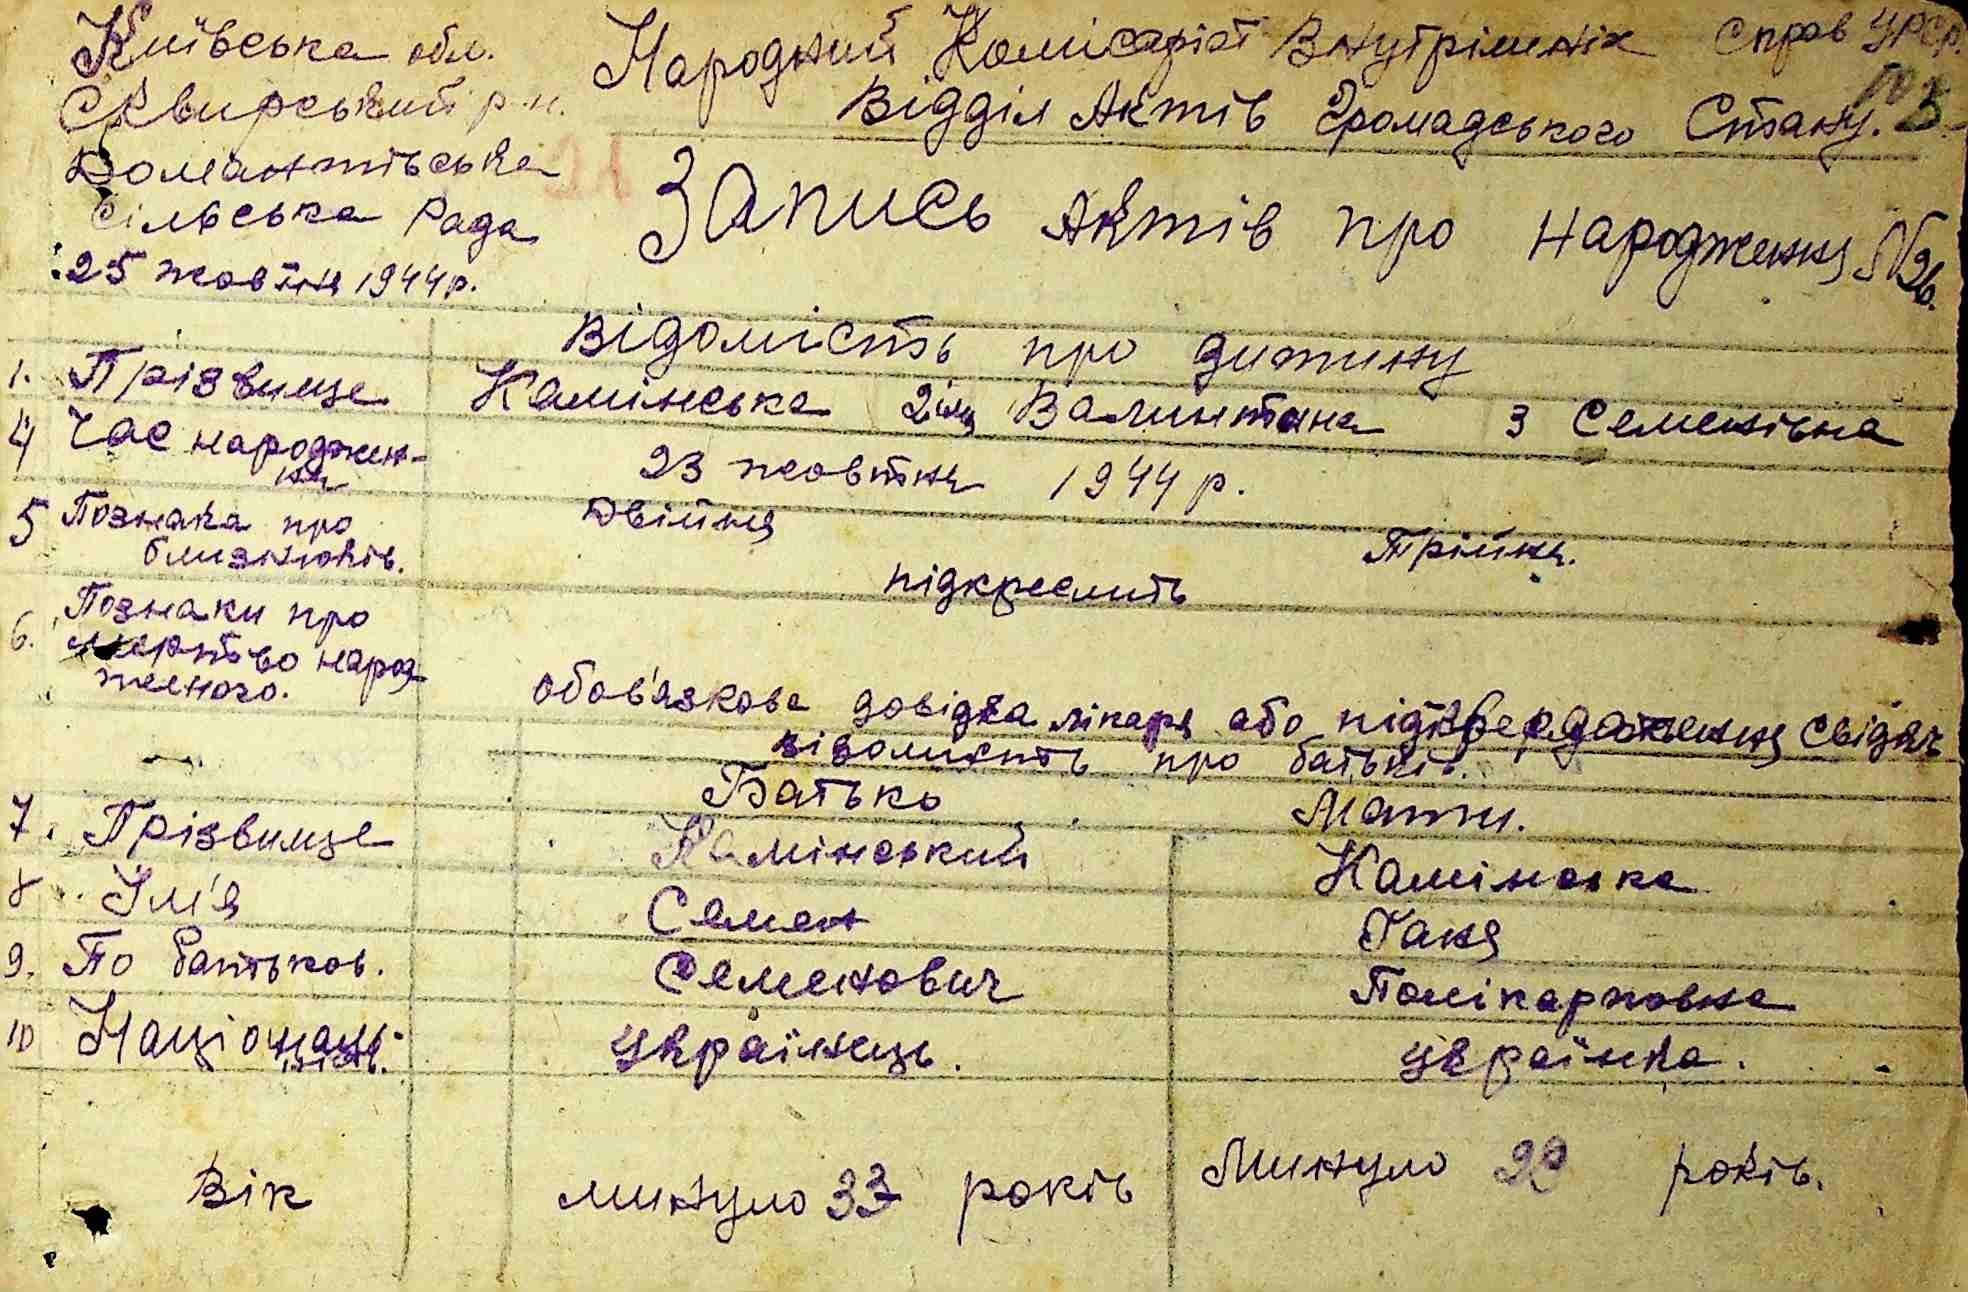 Київська обл.
Сквирський р-н.
Домантівська
сільська Рада
25 жовтня 1944 р.
Народний Комісаріат Внутрішніх Справ УРСР.
Відділ Актів Громадського Стану.
Запись Актів про народження N 26.
Відомість про дитину
1. Прізвище Камінська 2 імя Валинтина 3 Семенівна
4 Час народжен-
ня 23 жовтня 1944 р.
5 Познака про Двійня Трійня.
близнюків. підкреслить
6. Познаки про
мертво народ-
женого. обов'язкова довідка лікаря або підтвердження свідка
відомість про батьків.
Батько Мати.
7. Прізвище Камінський Камінська
8 Ім'я Семен Ганя
9. По батьков. Семенович Полікарповна
10 Національ-
ність. Українець. Українка.
Вік минуло 33 років Минуло 29 років.